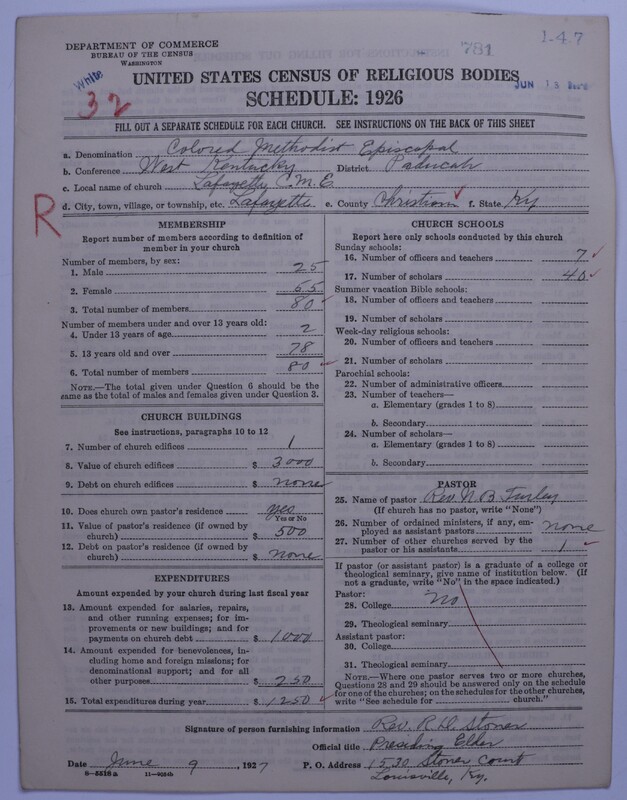 DEPARTMENT OF COMMERCE
BUREAU OF THE CENSUS
WASHINGTON
White
32
781
1-4 7
JUN 13
UNITED STATES CENSUS OF RELIGIOUS BODIES
SCHEDULE: 1926
FILL OUT A SEPARATE SCHEDULE FOR EACH CHURCH. SEE INSTRUCTIONS ON THE BACK OF THIS SHEET
R
a. Denomination Colored Methodist Episcopal
b. Conference West Kentucky District Paducah
c. Local name of church Lafayette C. M. E.
d. City, town, village, or township, etc. Lafayette e. County Christian f. State Ky
MEMBERSHIP
Report number of members according to definition of
member in your church
Number of members, by sex:
1. Male 25
2. Female 55
3. Total number of members 80
Number of members under and over 13 years old:
4. Under 13 years of age 2
5. 13 years old and over 78
6. Total number of members 80
NOTE.—The total given under Question 6 should be the
same as the total of males and females given under Question 3.
CHURCH BUILDINGS
See instructions, paragraphs 10 to 12
7. Number of church edifices 1
8. Value of church edifices $ 3000
9. Debt on church edifices $ none
10. Does church own pastor's residence yes
Yes or No
11. Value of pastor's residence (if owned by
church) $ 500
12. Debt on pastor's residence (if owned by
church) $ none
EXPENDITURES
Amount expended by your church during last fiscal year
13. Amount expended for salaries, repairs,
and other running expenses; for im-
provements or new buildings; and for
payments on church debt $ 1000
14. Amount expended for benevolences, in-
cluding home and foreign missions; for
denominational support; and for all
other purposes $ 250
15. Total expenditures during year $ 1250
CHURCH SCHOOLS
Report here only schools conducted by this church
Sunday schools:
16. Number of officers and teachers 7
17. Number of scholars 40
Summer vacation Bible schools:
18. Number of officers and teachers
19. Number of scholars
Week-day religious schools:
20. Number of officers and teachers
21. Number of scholars
Parochial schools:
22. Number of administrative officers
23. Number of teachers—
a. Elementary (grades 1 to 8)
b. Secondary
24. Number of scholars—
a. Elementary (grades 1 to 8)
b. Secondary
PASTOR
25. Name of pastor Rev. N. B.
(If church has no pastor, write "None")
26. Number of ordained ministers, if any, em-
ployed as assistant pastors none
27. Number of other churches served by the
pastor or his assistants 1
If pastor (or assistant pastor) is a graduate of a college or
theological seminary, give name of institution below. (If
not a graduate, write "No" in the space indicated.)
Pastor:
28. College No
29. Theological seminary
Assistant pastor:
30. College
31. Theological seminary
NOTE.—Where one pastor serves two or more churches,
Questions 28 and 29 should be answered only on the schedule
for one of the churches; on the schedules for the other churches,
write "See schedule for church."
Signature of person furnishing information Rev. R. D. Stoner
Official title Presiding Elder
Date June 9, 1927 P. O. Address 1530 Stoner Court
Louisville, Ky.